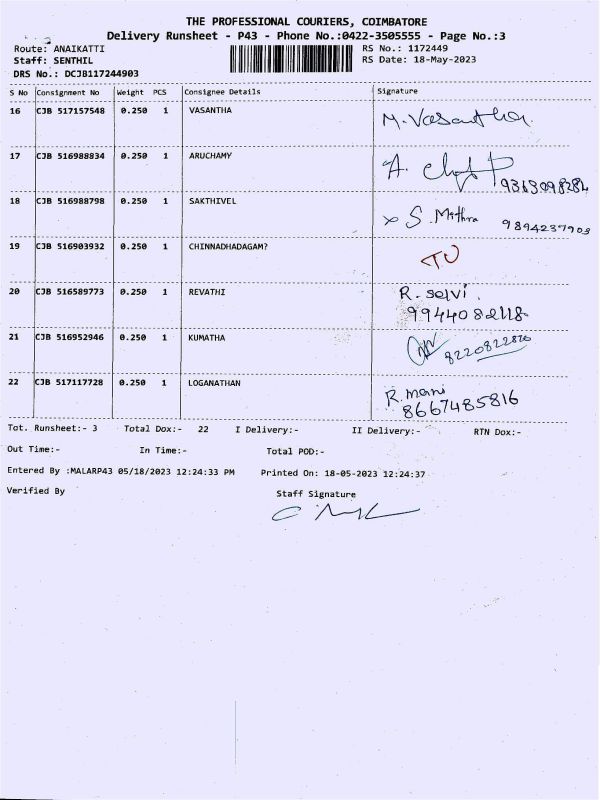 THE PROFESSIONAL COURIERS, COIMBATORE
Delivery Runsheet - P43 - Phone No.:0422-3505555 - Page No.:3
Route: ANAIKATTI RS No.: 1172449
Staff: SENTHIL RS Date: 18-May-2023
DRS No.: DCJB117244903
S No Consignment No Weight PCS Consignee Details Signature
16 CJB 517157548 0.250 1 VASANTHA M. Vasantha.
17 CJB 516988834 0.250 1 ARUCHAMY A.
9363098284
18 CJB 516988798 0.250 1 SAKTHIVEL x S. Mithra 9894237903
19 CJB 516903932 0.250 1 CHINNADHADAGAM? TU
20 CJB 516589773 0.250 1 REVATHI R. selvi.
9944082118
21 CJB 516952946 0.250 1 KUMATHA 8220822820
22 CJB 517117728 0.250 1 LOGANATHAN R. mani
8667485816
Tot. Runsheet:- 3 Total Dox:- 22 I Delivery:- II Delivery:- RTN Dox:-
Out Time:- In Time:- Total POD:-
Entered By :MALARP43 05/18/2023 12:24:33 PM Printed On: 18-05-2023 12:24:37
Verified By Staff Signature